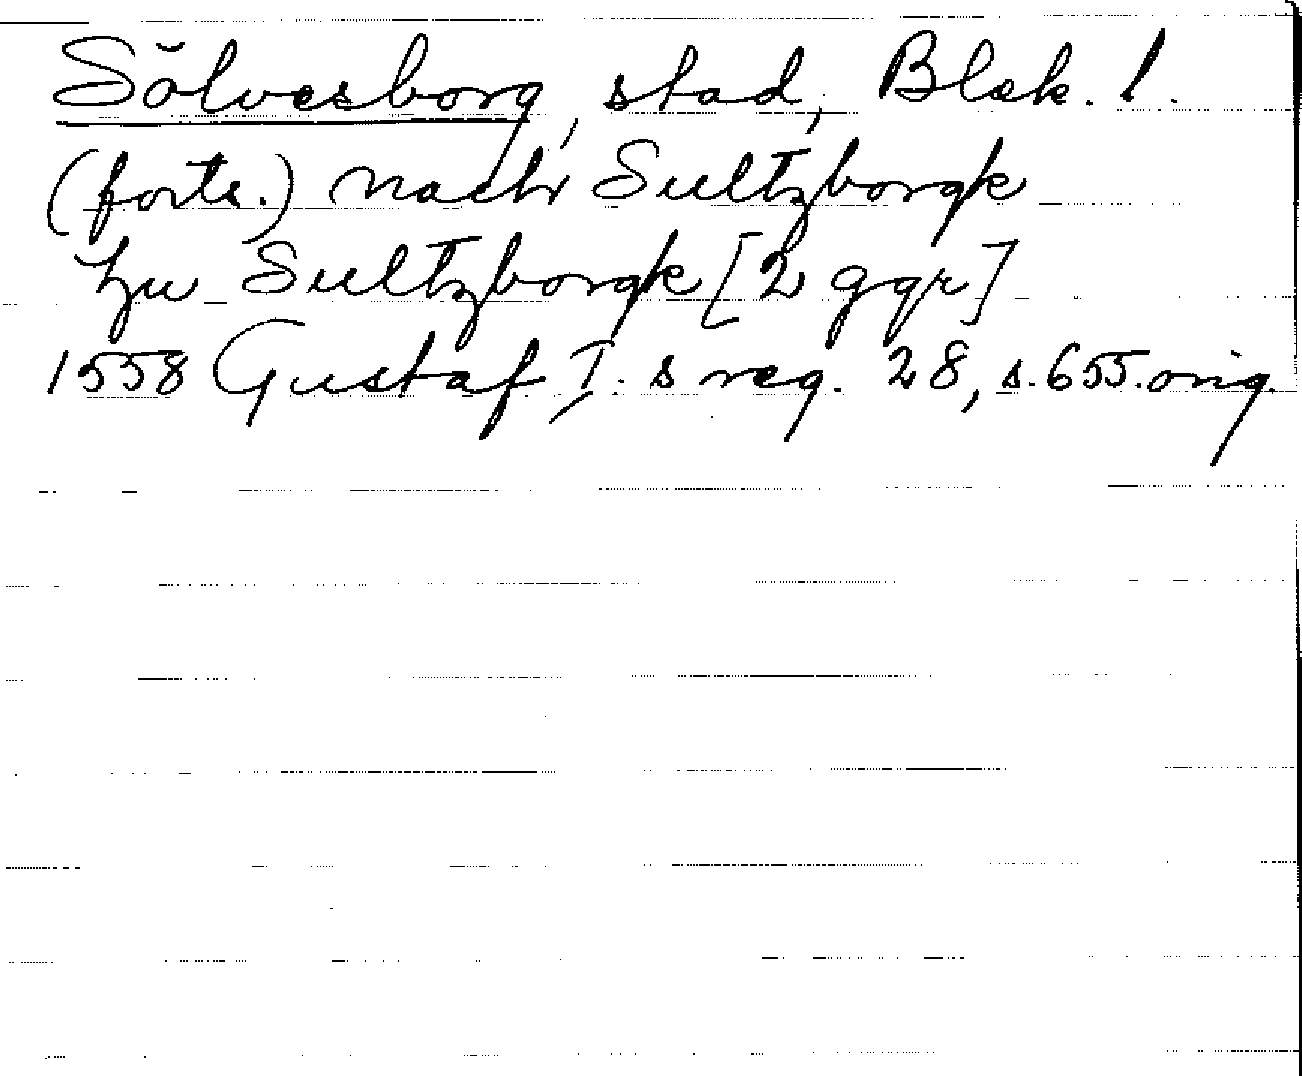 Sölvesborg, stad, Blek. l.
(forts.) nach Sultzborgk
zu Sultzborgk [2 ggr]
1558 Gustaf I. s reg. 28, s. 655. orig.